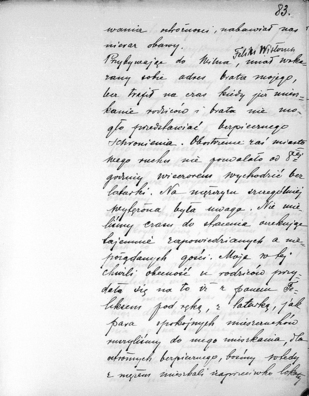 83.
wania ostrożności, nabawiał nas
nieraz obawy.
Feliks Wistouch
Przybywając do Wilna, miał wska-
zany sobie adres brata mojego,
lecz trafił na czas kiedy już miesz-
kanie rodziców i brata nie mo-
gło przedstawiać bezpiecznego
schronienia. Obostrzenie zaś miastec-
kiego ruchu nie pozwalało od 8ej
godziny wieczorem wychodzić bez
latarki. Na mężczyzn szczególniej
wytężona była uwaga. Nie mie-
liśmy czasu do stracenia oczekując
tajemnie zapowiedzianych a nie
pożądanych gości. Moja w tej
chwili obecność u rodziców przy-
dała się na to iż z panem Fe-
liksem pod rękę, z latarką, jak
para spokojnych mieszczuchów
ruszyliśmy do mego mieszkania, dla
ostrożnych bezpiecznego, bośmy wtedy
z mężem mieszkali naprzeciwko